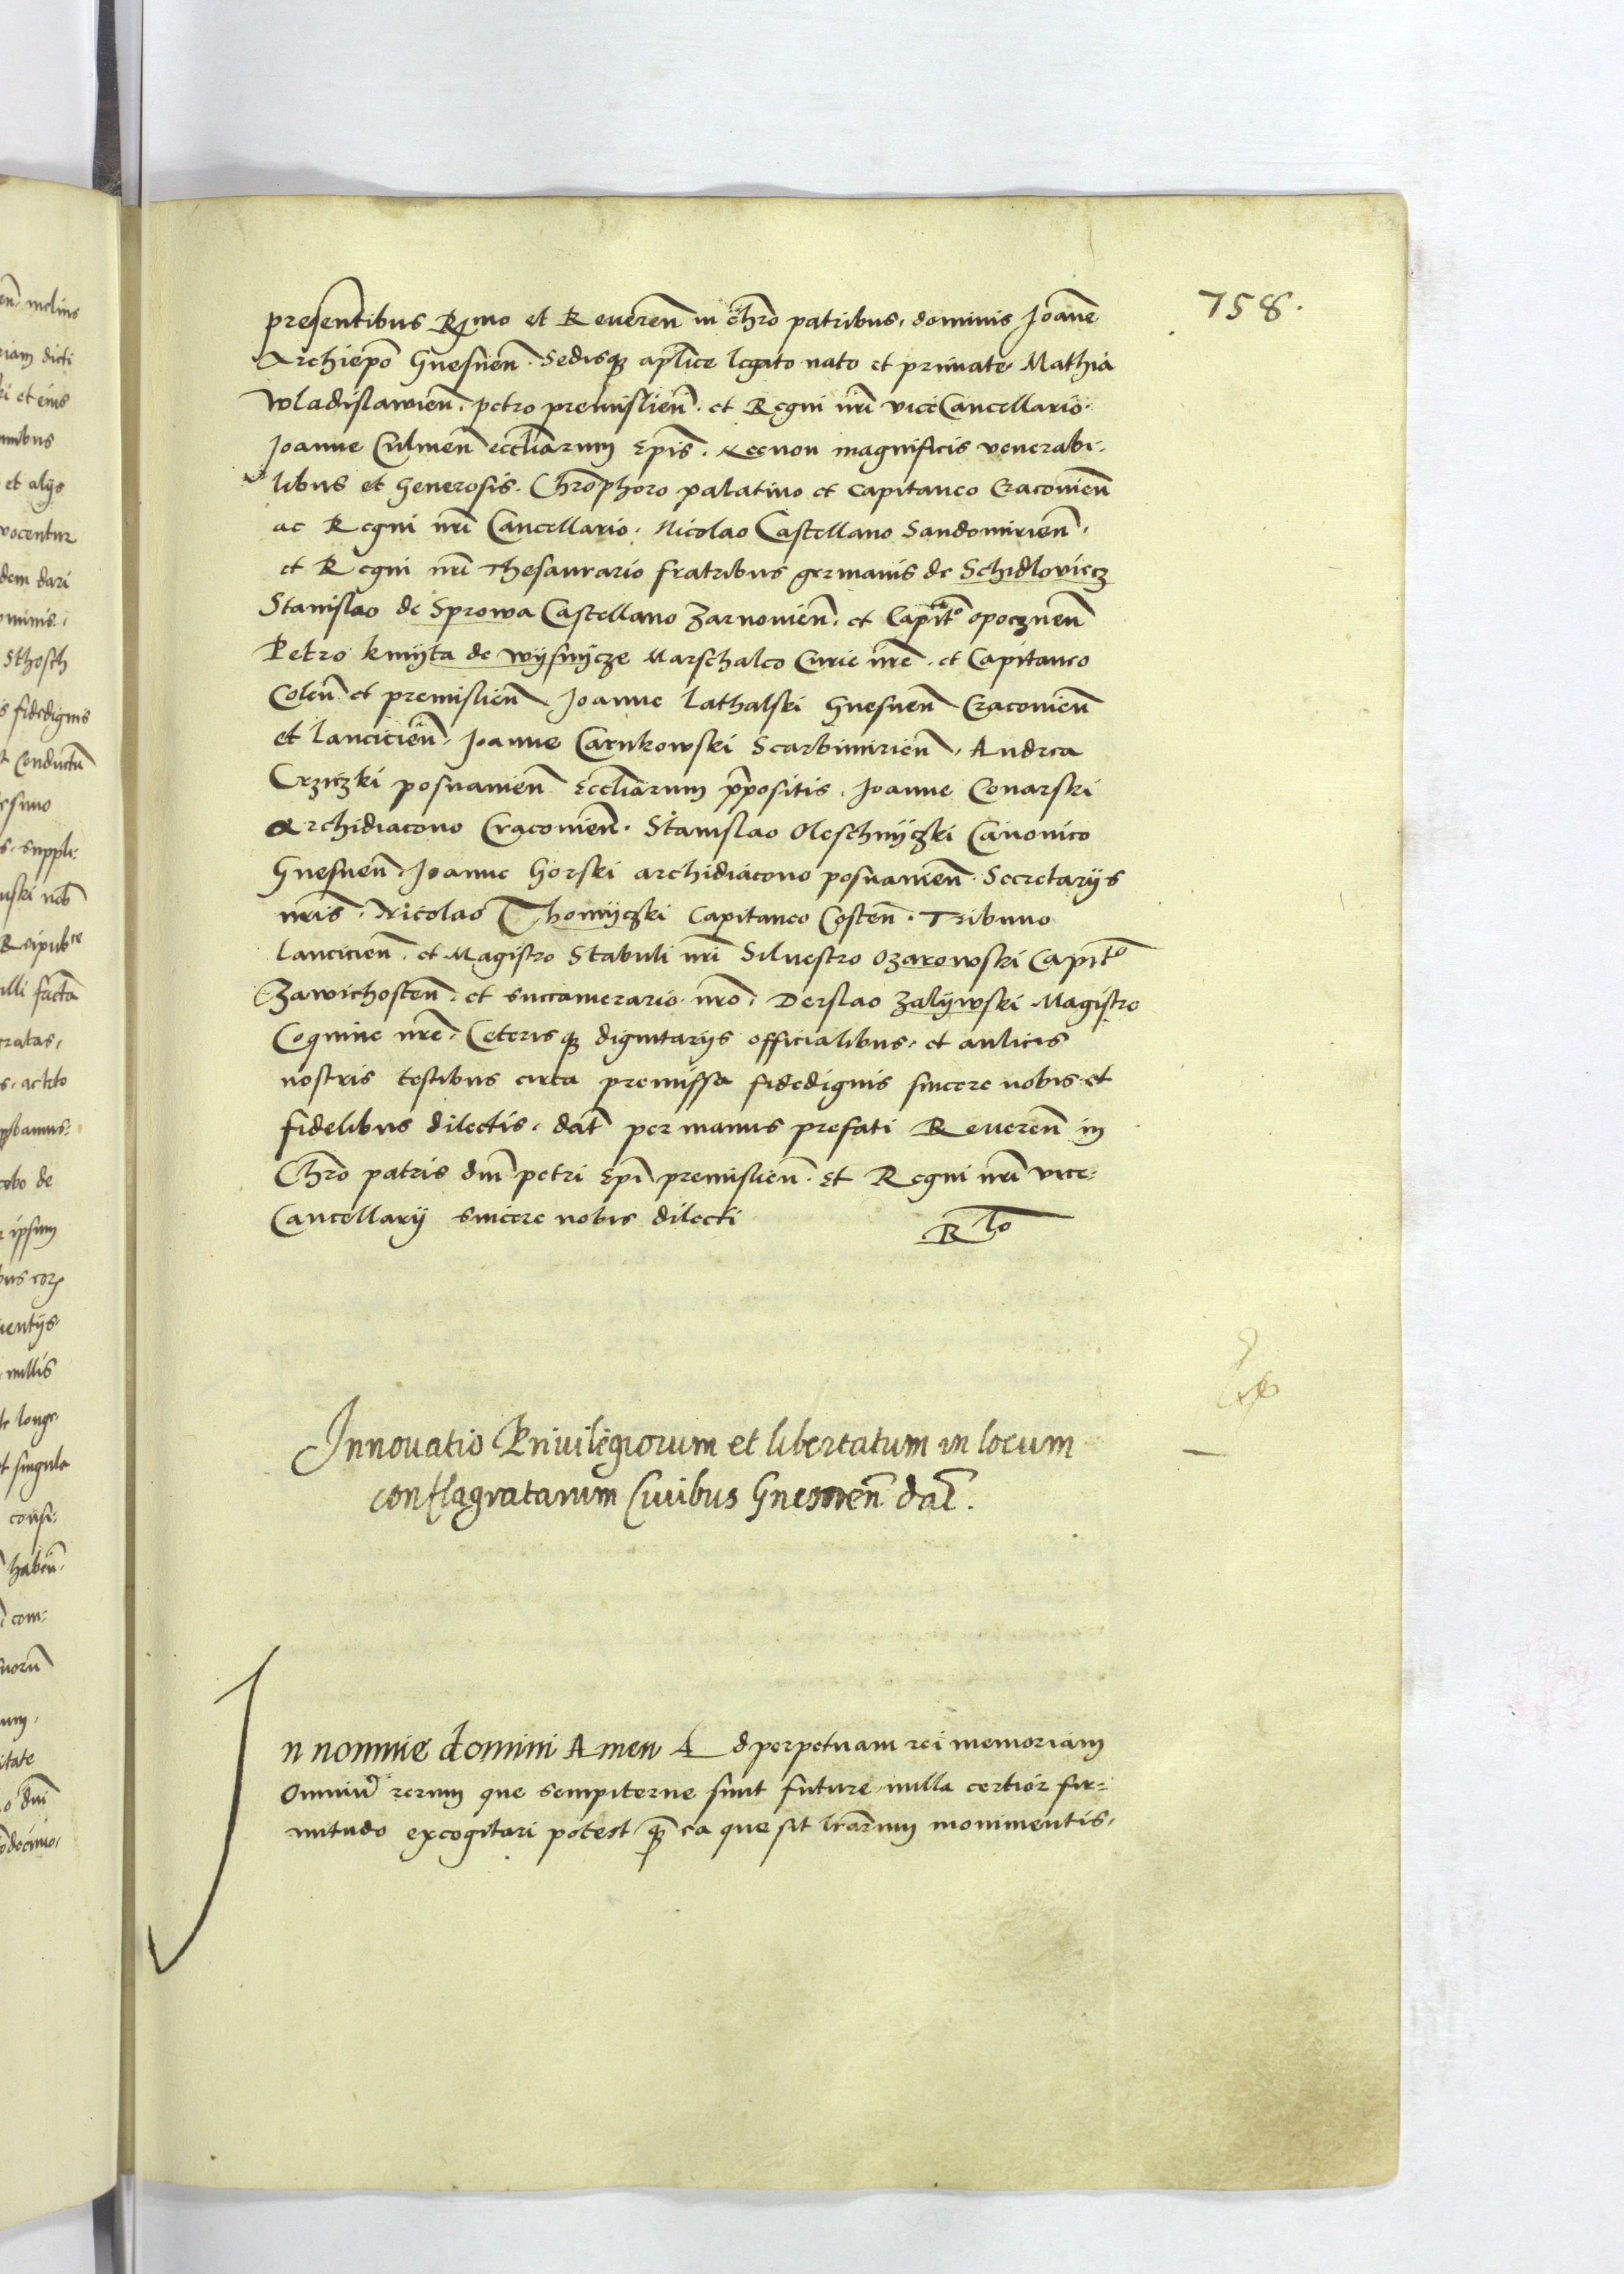 758.
presentibus Rmo et Reveren̄ in chro patribus, dominis Joāne
Archiepo Gnesnen̄. Sedisq̨ aplice legato nato et primate Mathia
Wladislawien̄. petro premislien̄. et Regni nri vice Cancellario.
Joanne Culmen̄ eccliarum Epis. Necnon magnificis venerabi-
libus et Generosis. Chroph​oro palatino et capitaneo Cracovien̄
ac Regni nri Cancellario. Nicolao Castellano Sandomirien̄.
et Regni nri Thesaurario fratribus germanis de Schidloviecz
Stanislao de Sprowa Castellano Zarnovien̄. et Capitō opocznen̄
Petro kmÿta de wÿsnÿcze Marschalco Curie nre. et Capitaneo
Colen̄ et premislien̄ Joanne Lathalski Gnesnen̄ Cracovien̄
et Lancicien̄. Joanne Carnkowski Scarbimirien̄. Andrea
Crziczki posnanien̄ Eccliarum p̄positis. Joanne Conarski
Archidiacono Cracovien̄. Stanislao Oleschnÿczki Canonico
Gnesnen̄. Joanne Gorski archidiacono posnanien̄. Secretarÿs
nris. Nicolao Thomÿczki Capitaneo Costen̄. Tribuno
Lancicien̄. et Magistro Stabuli nri Silvestro Ozarowski Capitō
Zawichosten̄. et succamerario nro. Derslao Zalÿwski Magistro
Coquine nre. Ceterisq̨ dignitarÿs officialibus. et aulicis
nostris testibus circa premissa fidedignis sincere nobis et
fidelibus dilectis. dat̄ per manus prefati Reveren̄ in
Chro patris dni petri Epi premislien̄. Et Regni nri vice-
Cancellarÿ sincere nobis dilecti
Rlo
Innovatio Privilegiorum et libertatum in locum
conflagratarum Civibus Gnesnen̄ dat̄.
In nomine domini Amen Ad perpetuam rei memoriam
Omniū rerum que sempiterne sunt future nulla certior fir-
mitudo excogitari potest q̨̄ ea que fit lrarum monimentis,